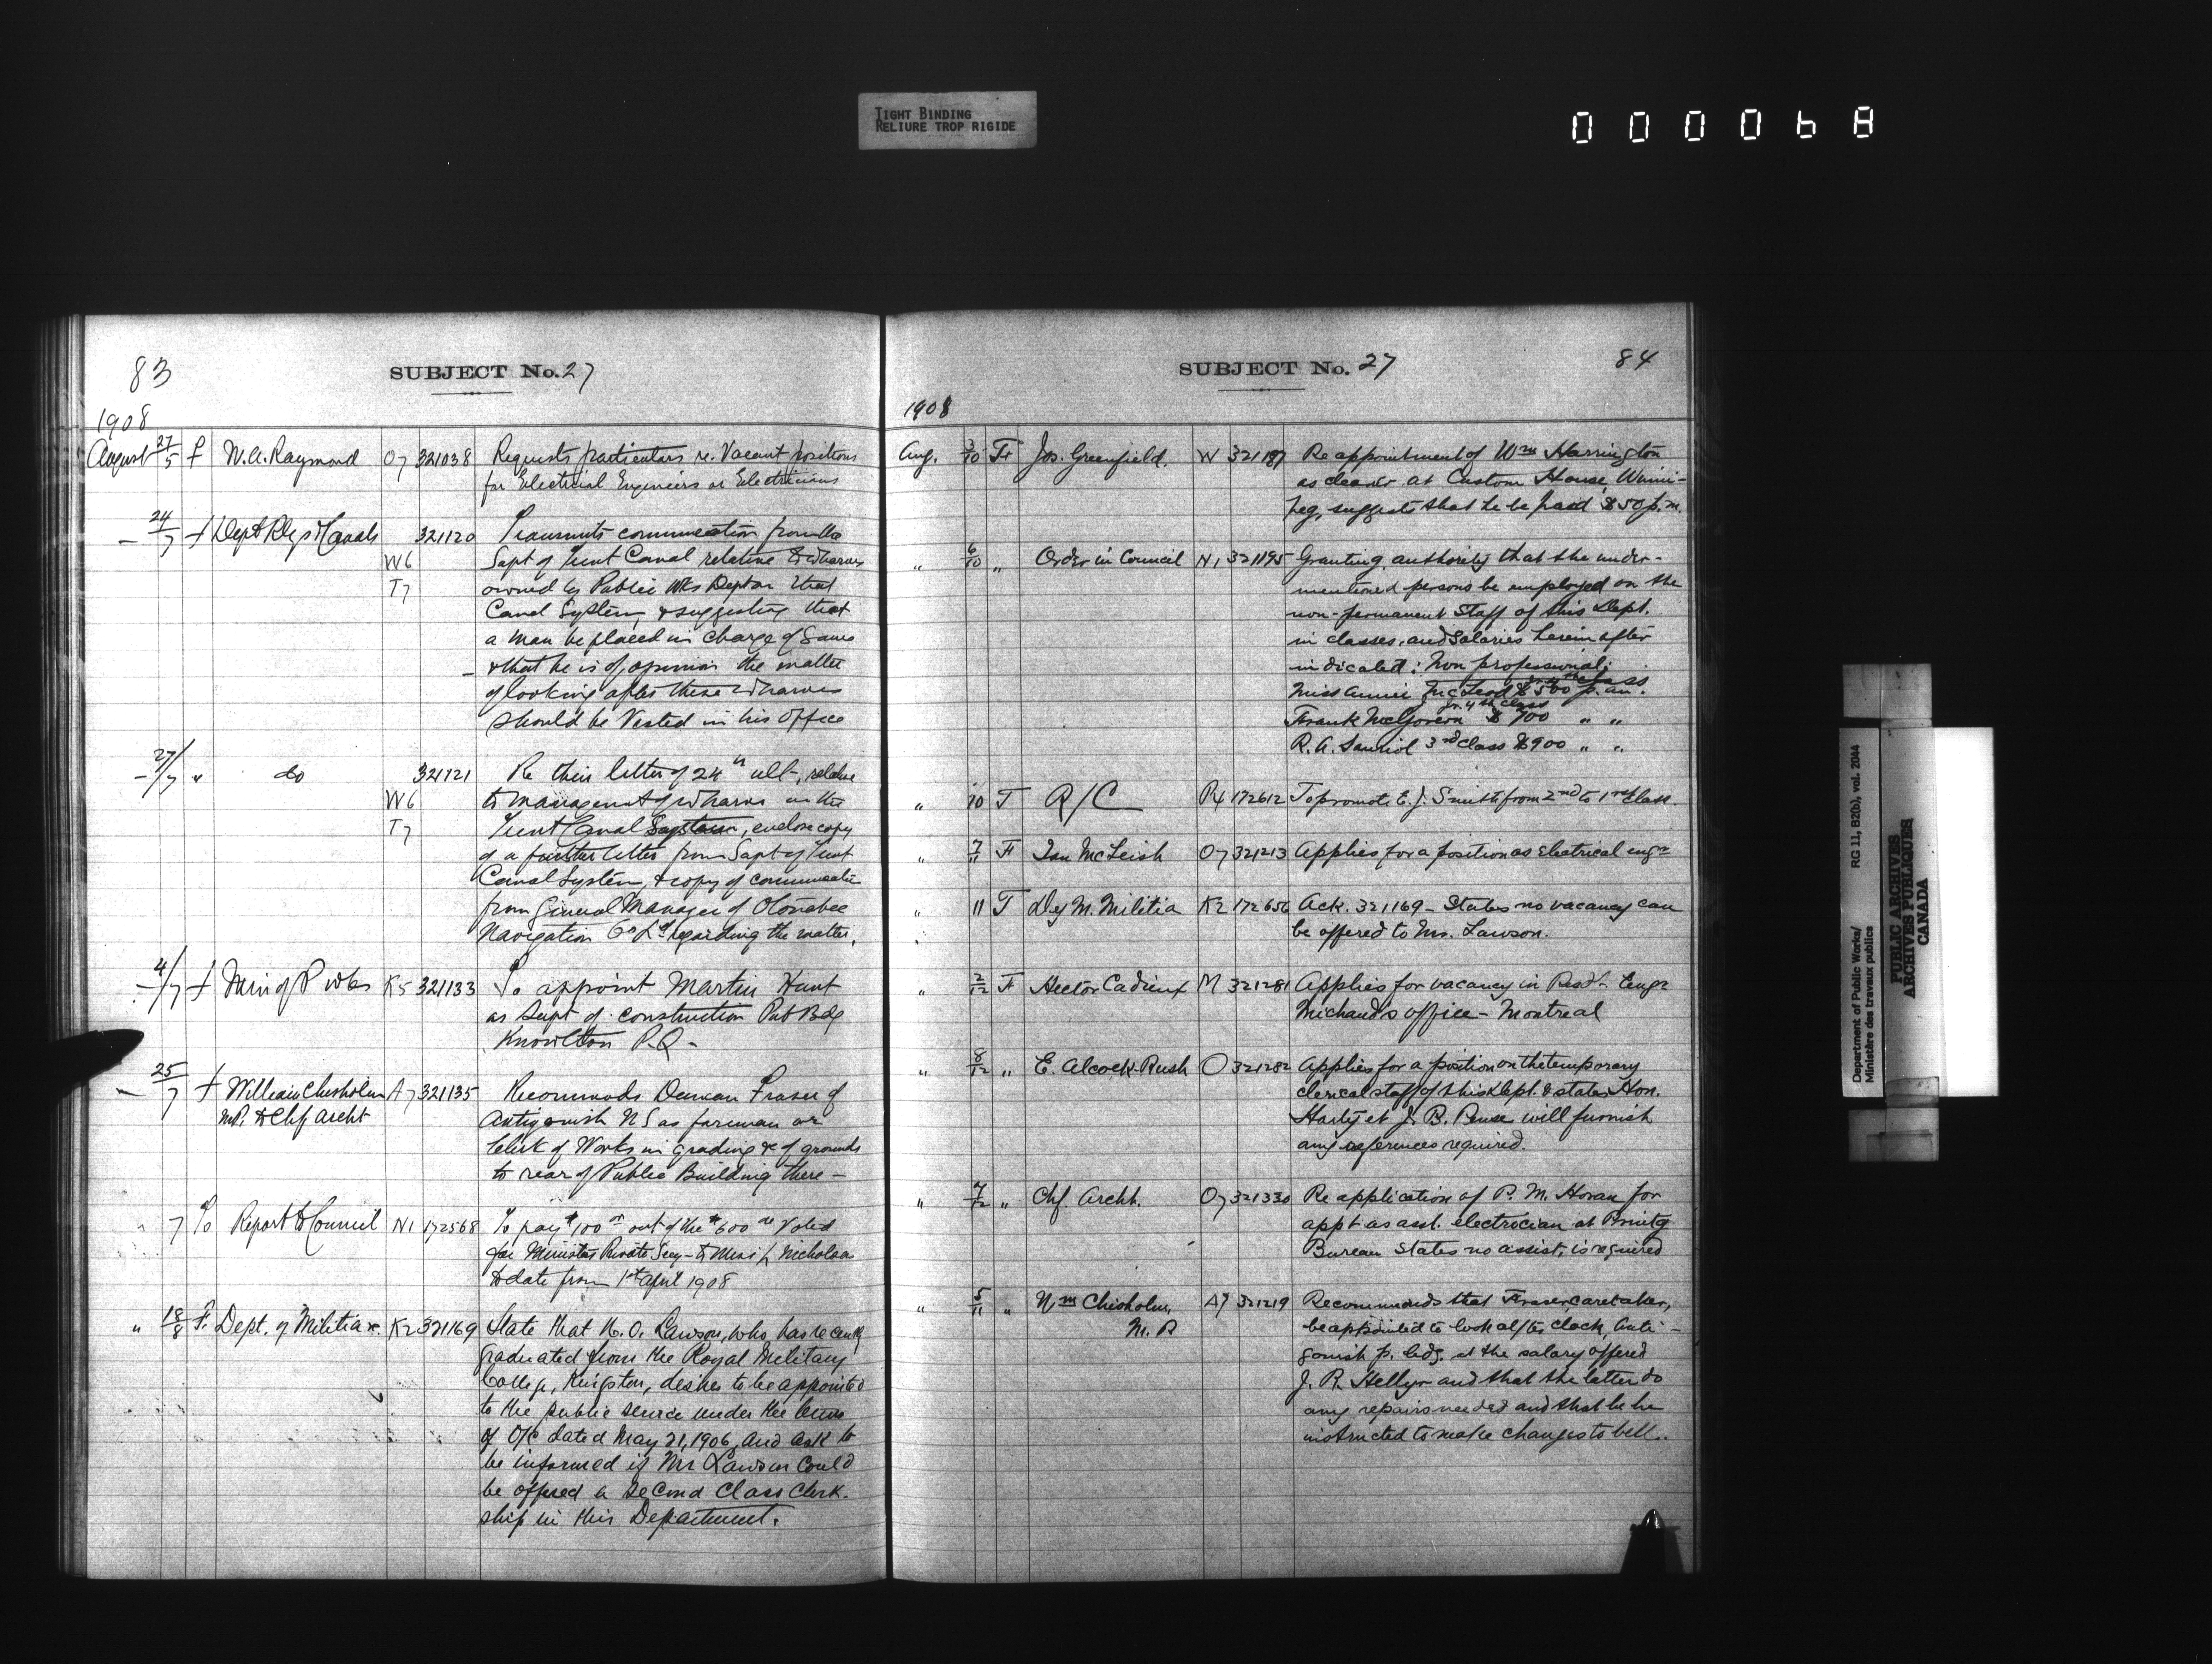 TIGHT BINDING
RELIURE TROP RIGIDE
000068
83
SUBJECT No. 27
1908
August 27/5 f W.A. Raymond O7 321038 Requests particulars re. Vacant positions
for Electrical Engineers or Electricians
— 24/7 f Dept Rlys & Canals 321120 Transmits communication from the
W6 Supt of Trent Canal relative to wharves
T7 owned by Public Wks Dept on that
Canal System, & suggesting that
a man be placed in charge of same
— & that he is of opinion the matter
of looking after these wharves
should be Vested in his office
— 27/7 " do 321121 Re their letter of 24th ult, relative
W6 to management of wharves on the
T7 Trent Canal System, enclose copy
of a further letter from Supt of Trent
Canal System, & copy of communicatn
from General Manager of Otonabee
Navigation Co Ld regarding the matter.
— 4/7 f Min of P Wks K5 321133 To appoint Martin Hunt
as Supt of construction Pub Bdg
Knowlton P.Q.
— 25/7 f William Chisholm A7 321135 Recommends Duncan Fraser of
MP. to Chf Archt Antigonish NS as foreman or
Clerk of Works in grading &c of grounds
to rear of Public Building there —
" 7 To Report to Council N1 172568 To pay $100 00 out of the $600 00 Voted
for Ministers Private Secy — to Miss Nicholson
to date from 1st April 1908
" 18/8 F. Dept. of Militia &c. K2 321169 State that N.O. Lawson, who has recently
graduated from the Royal Military
College, Kingston, desires to be appointed
to the public service under the terms
of O/C dated May 21, 1906, and ask to
be informed if Mr Lawson could
be offered a second class clerk-
ship in this Department.
SUBJECT No. 27
84
1908
Aug. 3/10 Fr Jos. Greenfield. W 321187 Re appointment of Wm Harrington
as cleaner at Custom House, Winni-
peg, suggests that he be paid $50 p.m.
" 6/10 " Order in Council N1 321195 Granting authority that the under-
mentioned persons be employed on the
non-permanent Staff of this Dept.
in classes, and salaries herein after
indicated: Non professional:
Miss Annie McLeod $500 p. an.
jr. 4th class
Frank McGovern $700 " "
R.A. Sauriol 3rd class $900 " "
" 10 T R/C P4 172612 To promote E.J. Smith from 2nd to 1st Class.
" 7/11 Fr Ian McLeish O7 321213 Applies for a position as electrical engr
" 11 T Dy M. Militia K2 172656 Ack. 321169 — States no vacancy can
be offered to Mr. Lawson.
" 2/12 Fr Hector Cadieux M 321281 Applies for vacancy in Resdt Engr
Michaud's office — Montreal
" 8/12 " E. Alcock-Rush O 321282 Applies for a position on the temporary
clerical staff of this Dept. & states Hon.
Harty et J. B. Pense will furnish
any references required.
" 7/12 " Chf. Archt. O7 321330 Re application of P. M. Horan for
appt as asst. electrician at Printg
Bureau States no assist. is required
" 5/11 " Wm Chisholm, A7 321219 Recommends that Fraser, caretaker,
M. P be appointed to look after clock, Anti-
gonish p. bdg. at the salary offered
J. R. Hellyer and that the latter do
any repairs needed and that he be
instructed to make changes to bell.
Department of Public Works/
Ministère des travaux publics
RG 11, B2(b), vol. 2044
PUBLIC ARCHIVES
ARCHIVES PUBLIQUES
CANADA